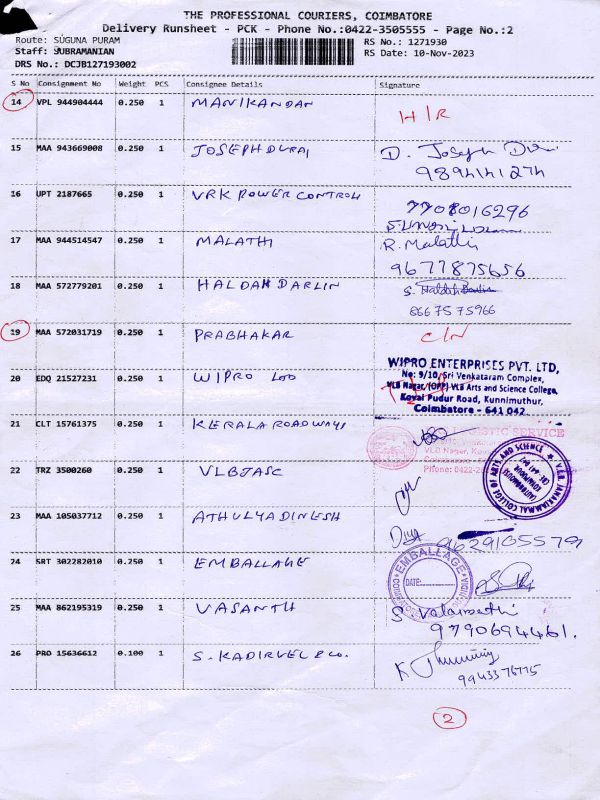 THE PROFESSIONAL COURIERS, COIMBATORE
Delivery Runsheet - PCK - Phone No.:0422-3505555 - Page No.:2
Route: SUGUNA PURAM
Staff: SUBRAMANIAN
DRS No.: DCJB127193002
RS No.: 1271930
RS Date: 10-Nov-2023
S No Consignment No Weight PCS Consignee Details Signature
14 VPL 944904444 0.250 1 MANIKANDAN
15 MAA 943669008 0.250 1 JOSEPHDURAI D. Joseph
16 UPT 2187665 0.250 1 VRK POWER CONTROLL 7708016296
17 MAA 944514547 0.250 1 MALATHI R. Malathi
9677875656
18 MAA 572779201 0.250 1 HALDAH DARLIN S. Haldah
8667575966
19 MAA 572031719 0.250 1 PRABHAKAR
20 EDQ 21527231 0.250 1 WIPRO LDD
WIPRO ENTERPRISES PVT. LTD,
No: 9/10, Sri Venkataram Complex,
VLB Nagar, (OPP) VLB Arts and Science College,
Kovai Pudur Road, Kunnimuthur,
Coimbatore - 641 042.
21 CLT 15761375 0.250 1 KERALA ROADWAYS
LOGISTIC SERVICE
VLB Nagar,
Coimbatore
Phone: 0422-2
22 TRZ 3500260 0.250 1 VLBJASC
V.L.B. JANAKIAMMAL COLLEGE OF ARTS AND SCIENCE
(AUTONOMOUS)
KOVAIPUDUR
CBE - 641 042
23 MAA 105037712 0.250 1 ATHULYADINESH Diya 9629105579
24 SRT 302282010 0.250 1 EMBALLAGE
EMBALLAGE
DATE:
25 MAA 862195319 0.250 1 VASANTH S Valarmathi
9790694461.
26 PRO 15636612 0.100 1 S. KADIRVEL & Co. K
9943376775
2